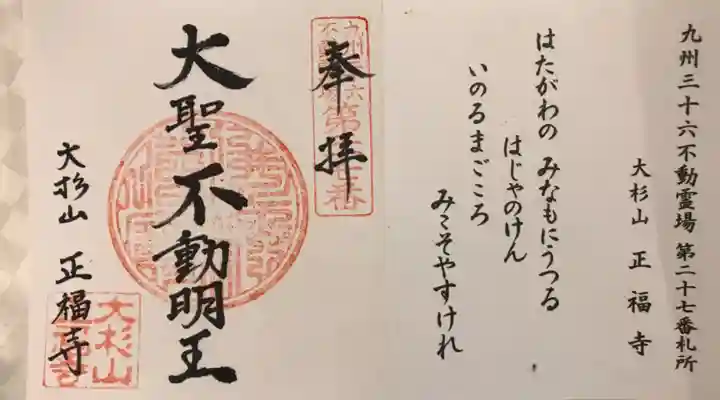 九州三十六不動霊場 第二十七番札所
大杉山 正福寺
はたがわの みなもにうつる
はじゃのけん
いのるまごころ
みこそやすけれ
奉拝
大聖不動明王
大杉山 正福寺
大杉山
正福寺